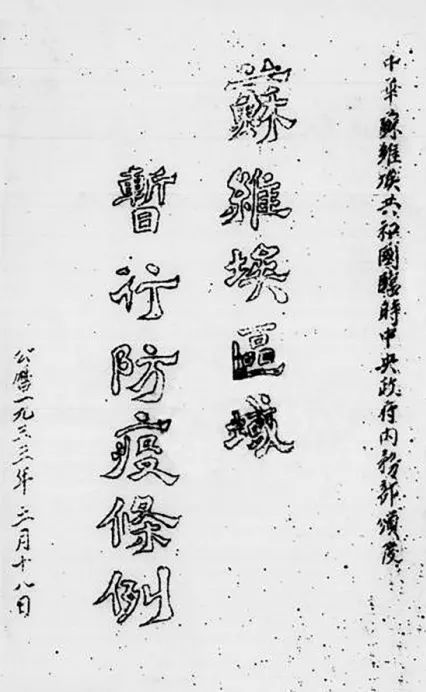 中華蘇維埃共和國臨時中央政府内務部頒發
蘇維埃區域
暫行防疫條例
公曆一九三三年三月十八日